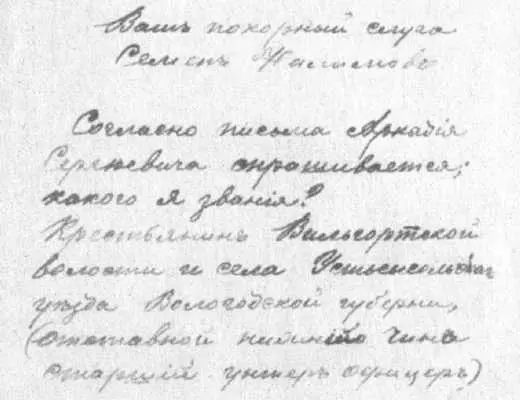 Вашъ покорный слуга
Семенъ Налимовъ
Согласно письма Аркадія
Сергѣевича спрашивается;
какого я званія?
Крестьянинъ Вильгортской
волости и села Устьсысольскаго
уѣзда Вологодской губерни,
(отставной нижнійо чина
старшій унтеръ офицеръ)